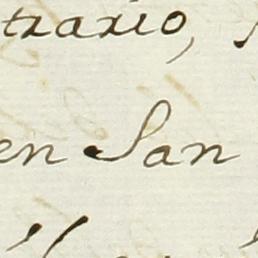 trario,
en San